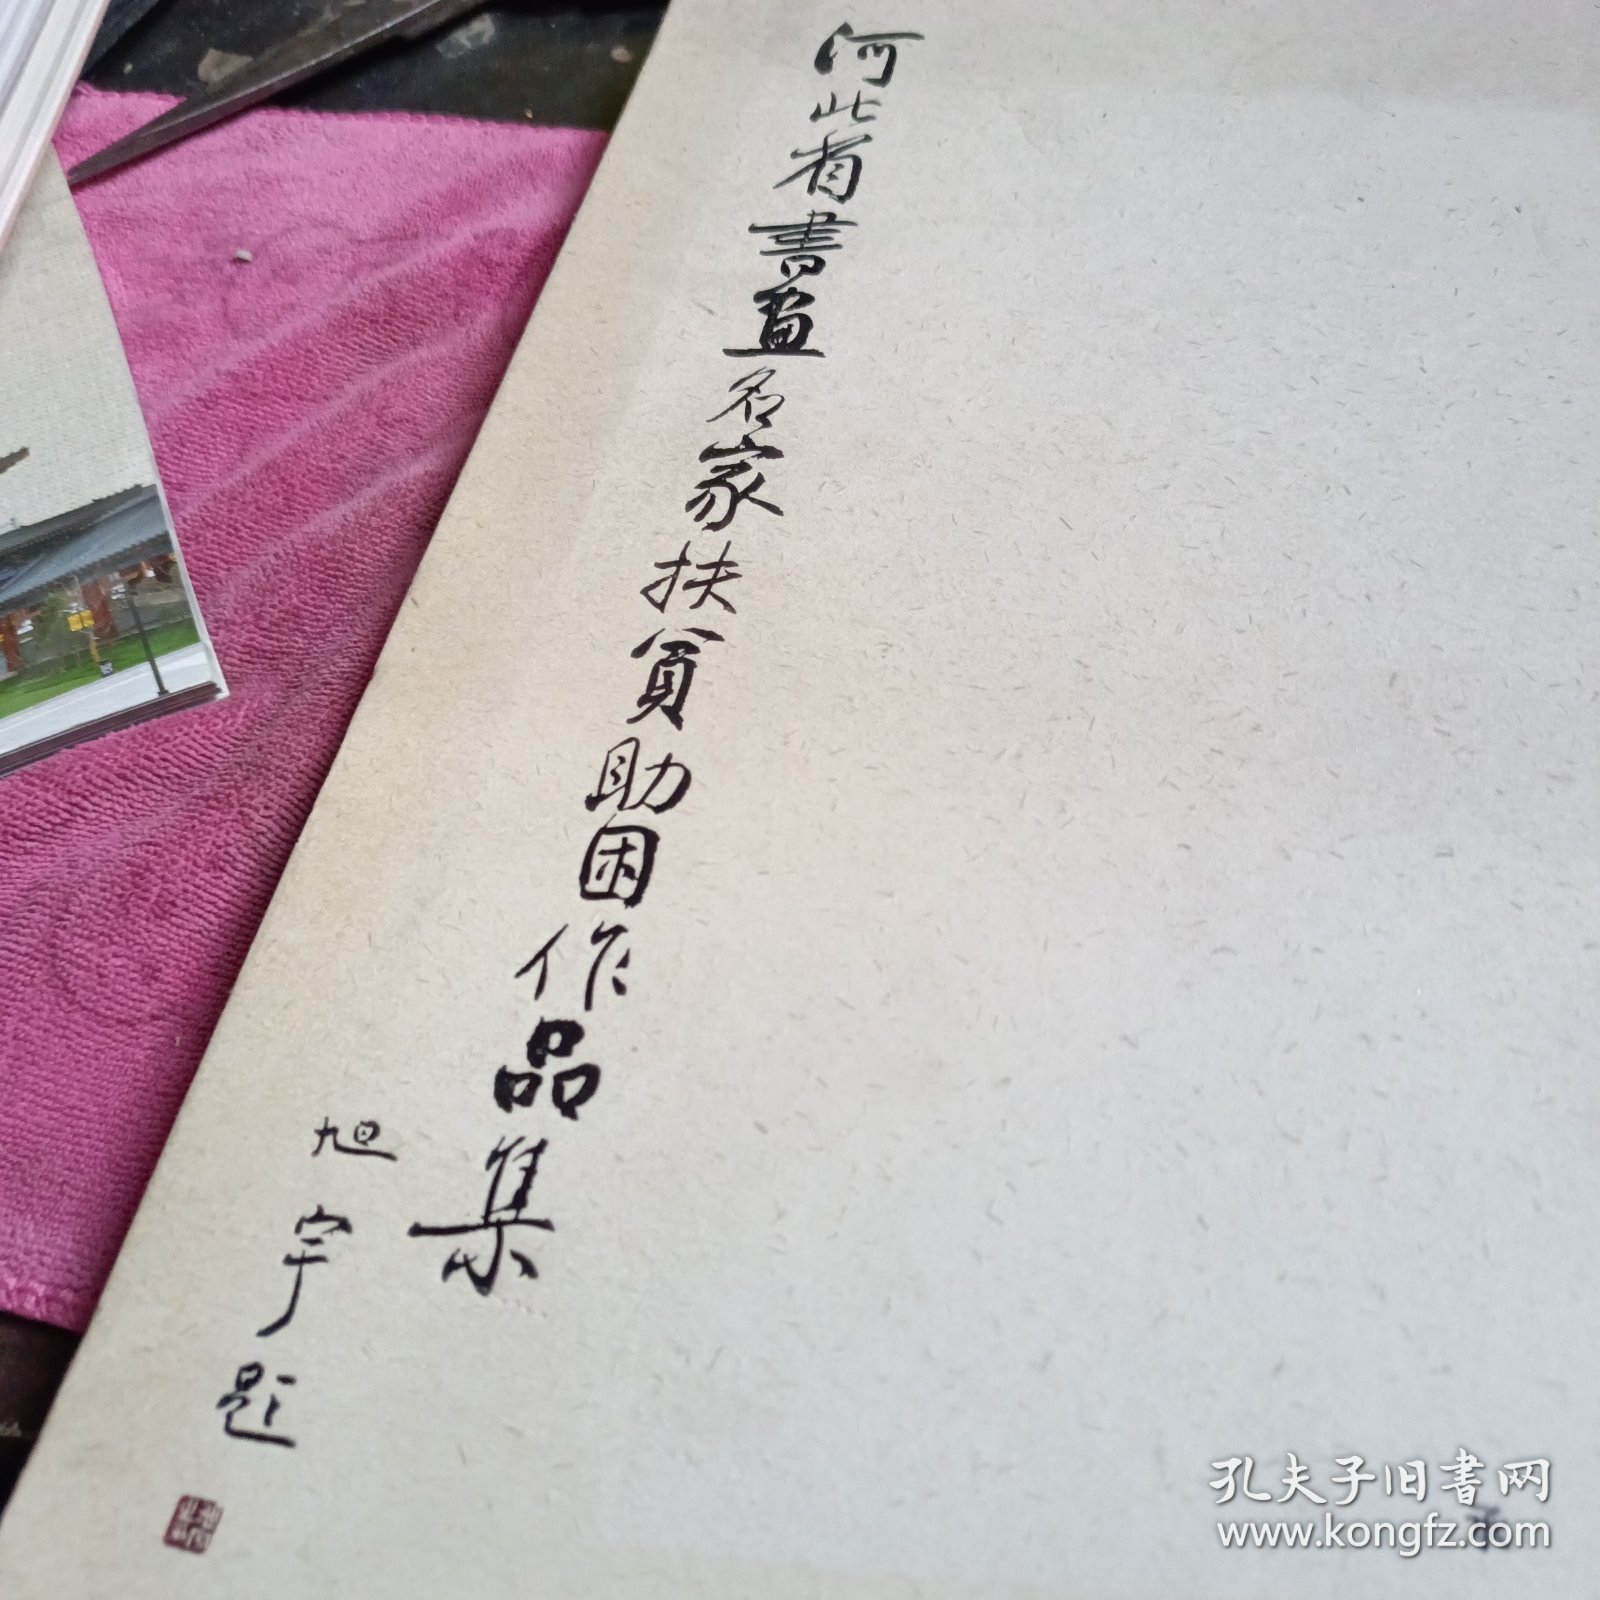 河北省書畫名家扶貧助困作品集
旭宇题
孔夫子旧书网
www.kongfz.com